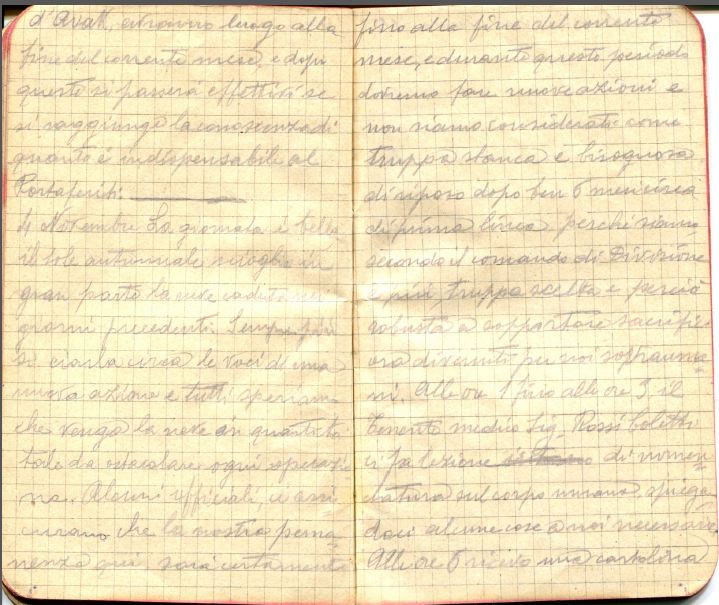 d'Avak, avranno luogo alla
fine del corrente mese, e dopo
questo si passerà effettivi se
si raggiunge la conoscenza di
quanto è indispensabile al
Portaferiti.
4 Novembre La giornata è bella
il sole autunnale scioglie in
gran parte la neve caduta nei
giorni precedenti. Sempre più
si ciarla circa le voci di una
nuova azione e tutti speriamo
che venga la neve in quantità
tale da ostacolare ogni operazio
ne. Alcuni ufficiali, ci assi
curano che la nostra perma
nenza qui sarà certamente
fino alla fine del corrente
mese, e durante questo periodo
dovremo fare nuove azioni e
non siamo considerati come
truppa stanca e bisognosa
di riposo dopo ben 6 mesi circa
di prima linea perchè siamo
secondo il comando di Divisione
e più truppa scelta e perciò
robusta a sopportare sacrifici
ora divenuti per noi sopraumа
ni. Alle ore 1 fino alle ore 3 il
Tenente medico Sig. Rossi Coletti
ci fa lezione di nomen
clatura sul corpo umano, spiegan
doci alcune cose a noi necessarie.
Alle ore 6 ricevo una cartolina